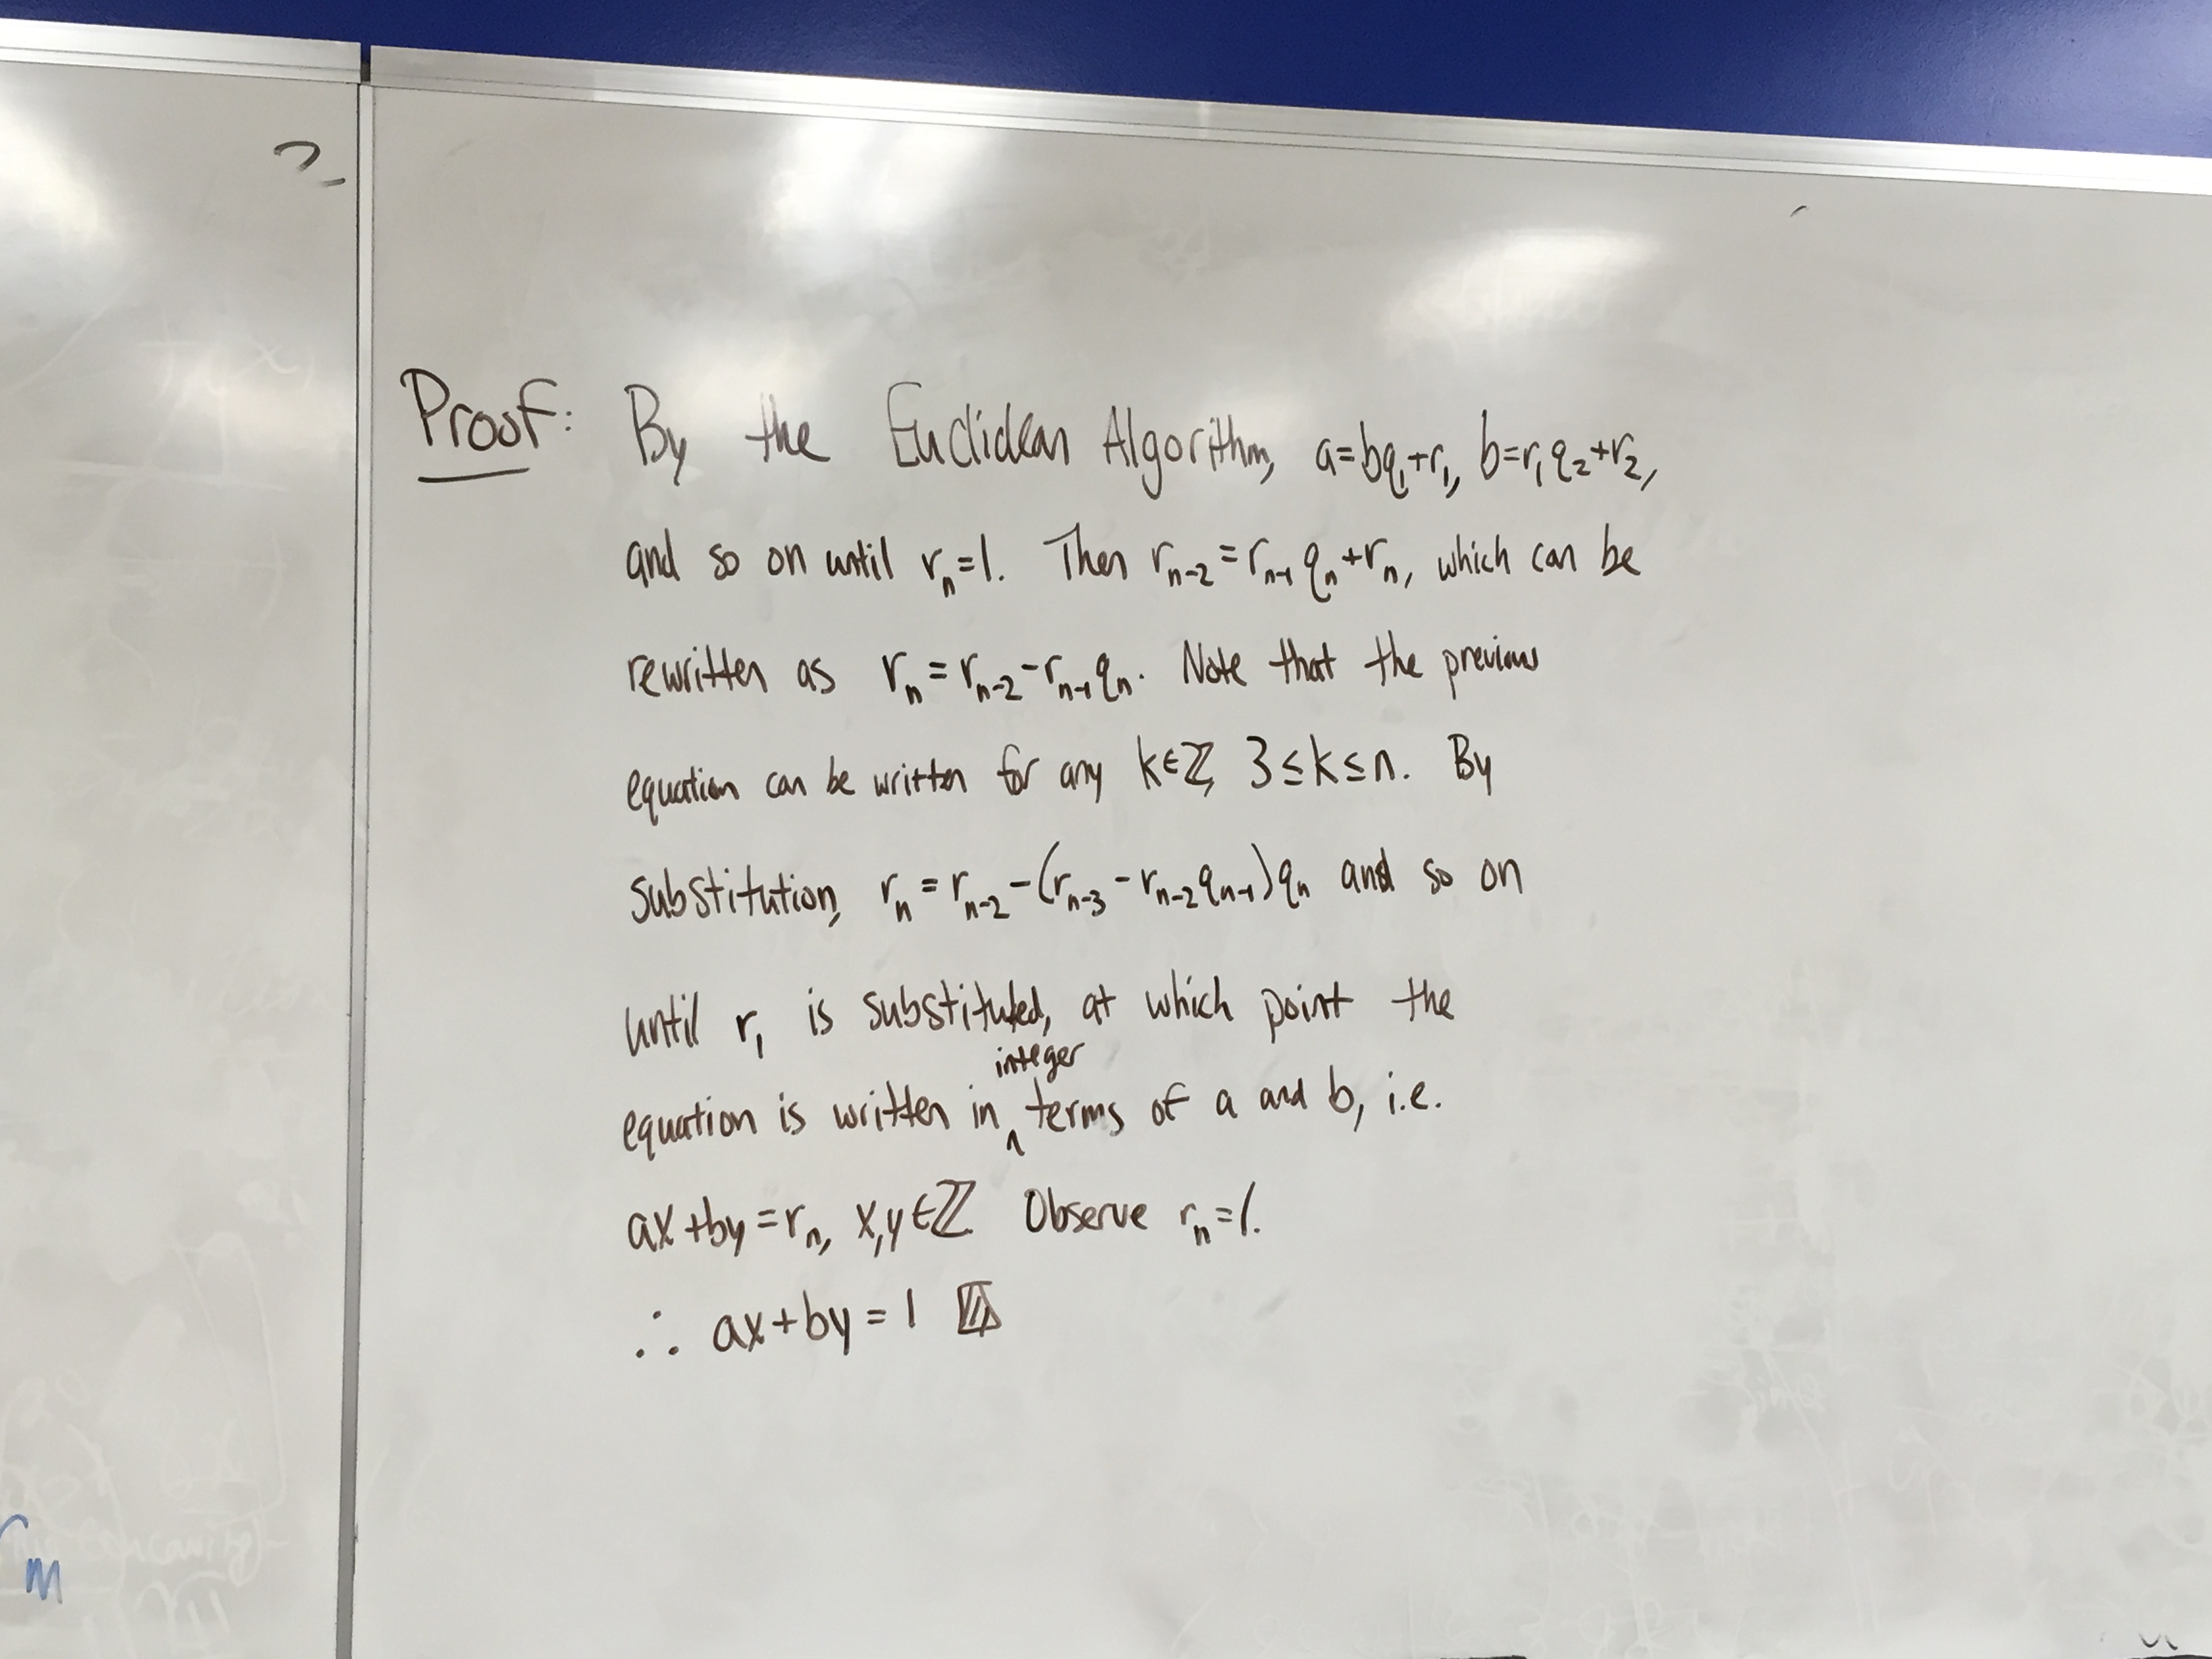 Proof: By the Euclidean Algorithm, a=bq₁+r₁, b=r₁q₂+r₂,
and so on until rₙ=1. Then rₙ₋₂=rₙ₋₁qₙ+rₙ, which can be
rewritten as rₙ=rₙ₋₂-rₙ₋₁qₙ. Note that the previous
equation can be written for any k∈ℤ, 3≤k≤n. By
substitution, rₙ=rₙ₋₂-(rₙ₋₃-rₙ₋₂qₙ₋₁)qₙ and so on
until r₁ is substituted, at which point the
integer
equation is written in ‸ terms of a and b, i.e.
ax+by=rₙ, x,y∈ℤ Observe rₙ=1.
∴ ax+by=1
m